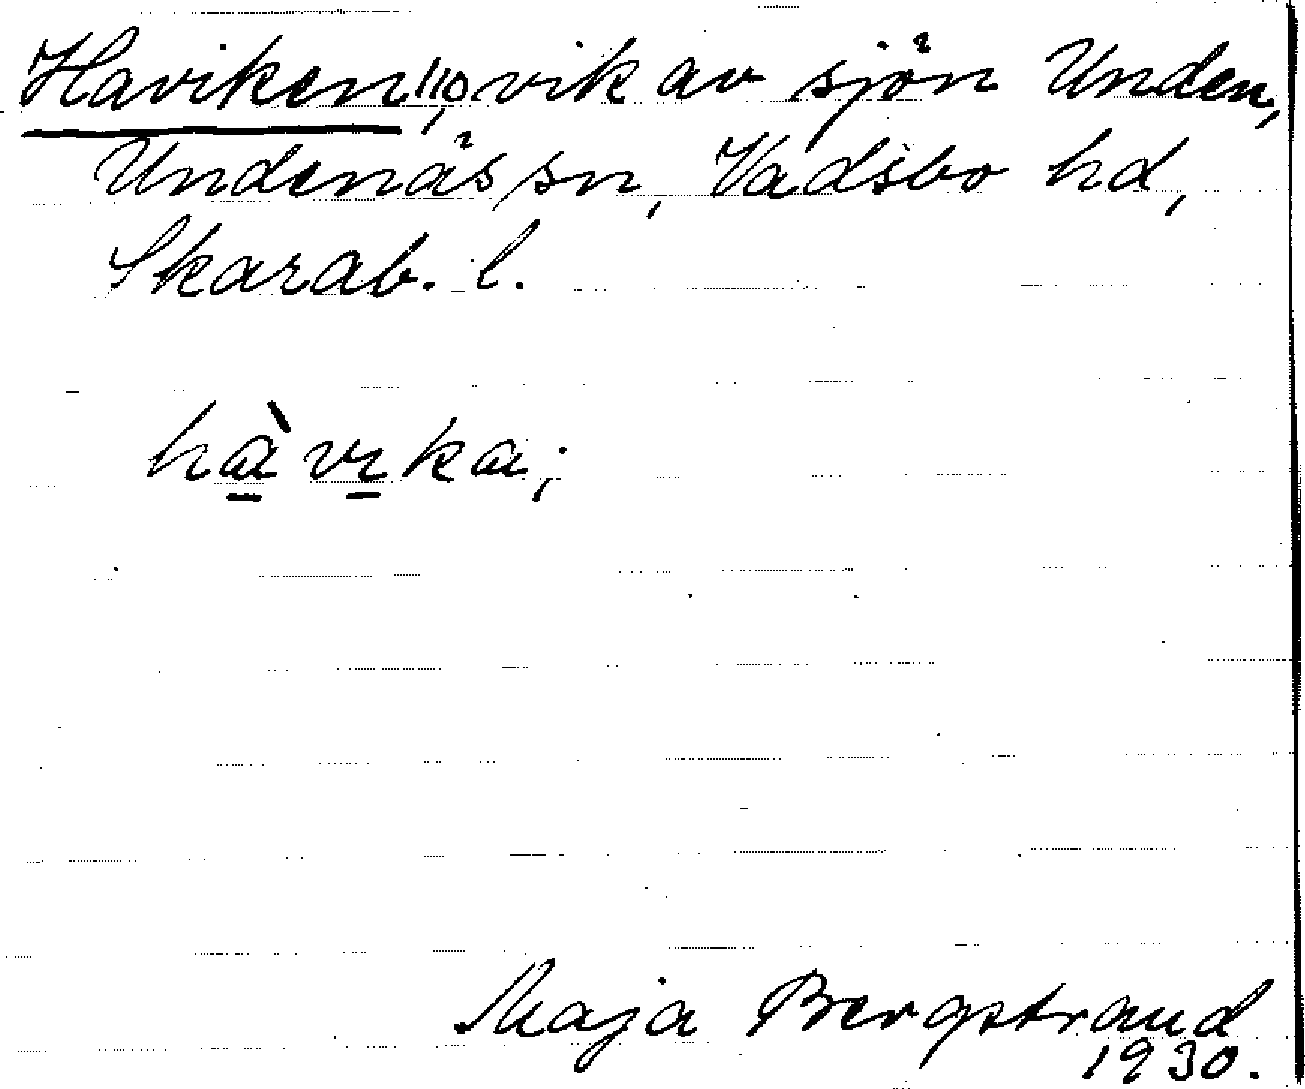 Haviken 1/10, vik av sjön Unden,
Undenäs sn, Vadsbo hd,
Skarab. l.
hàvıka;
Maja Bergstrand
1930.